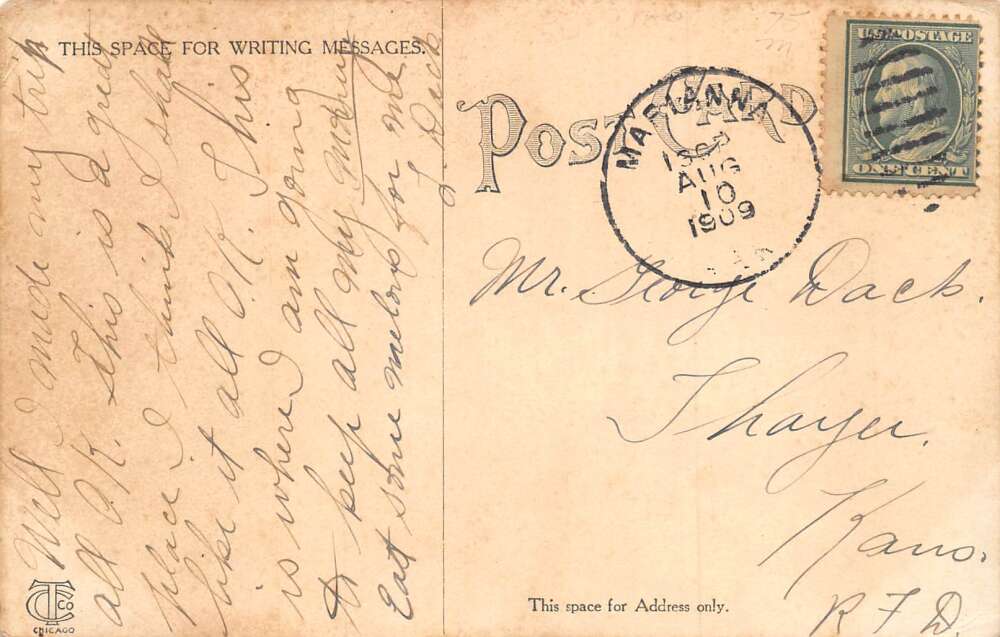 THIS SPACE FOR WRITING MESSAGES.
Well I made my trip
all O.K. this is a great
place I think I shall
like it all O.K. This
is where I am going
to keep all my money
Eat some melons for me
J. Dack
POST CARD
MARIANNA
AUG
10
1909
ARK
U.S. POSTAGE
ONE CENT
Mr. George Dack.
Thayer.
Kans.
R F D.
This space for Address only.
CTCo
CHICAGO